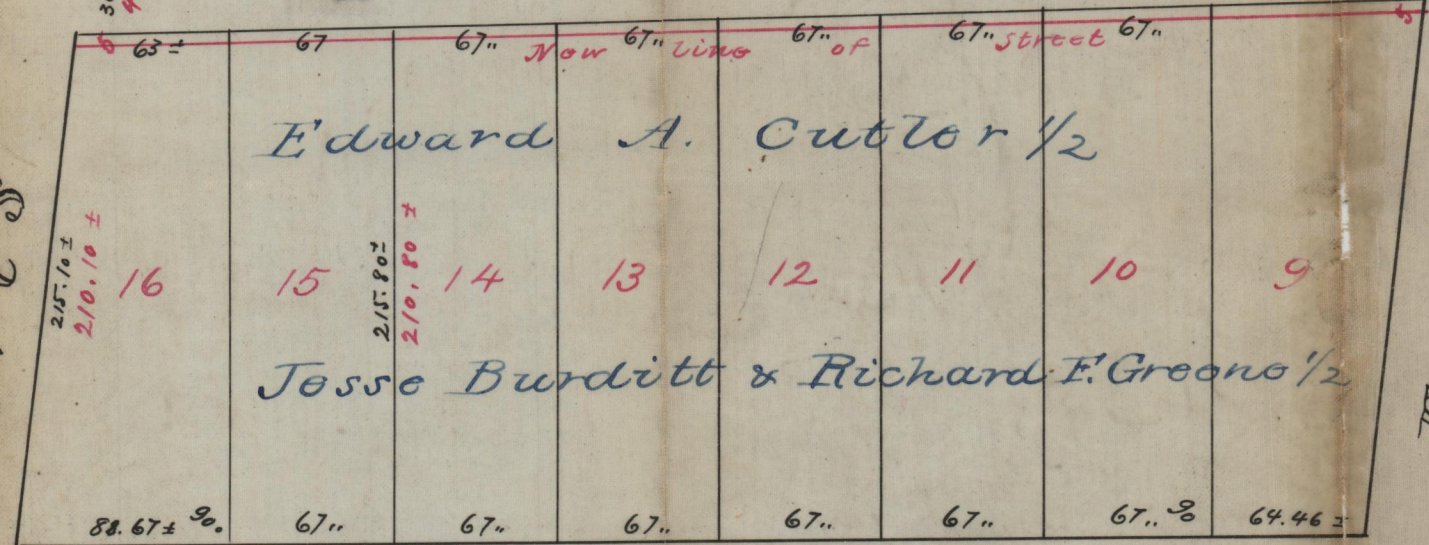 5 63± 67 67.. 67.. 67.. 67.. 67.. 5
New line of street
Edward A. Cutler 1/2
215.10± 210.10± 16 15 215.80± 210.80± 14 13 12 11 10 9
Jesse Burditt & Richard F. Greene 1/2
88.67± 90. 67.. 67.. 67.. 67.. 67.. 67.. 90 64.46±